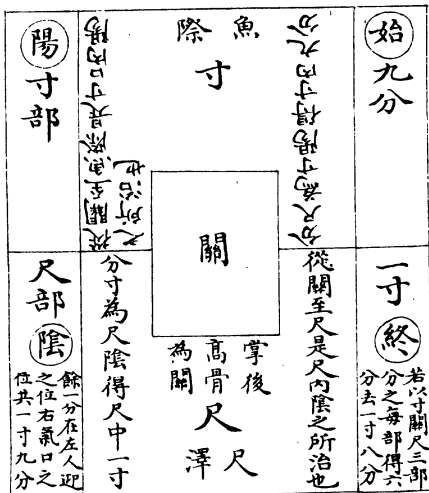 始九分
分尺為寸陽得寸內九分
魚際
寸
從關至魚際是寸口內陽
之所治也
陽寸部
關
一寸終
若以寸關尺三部
分之每部得六
分去一寸八分
從關至尺是尺內陰之所治也
掌後
高骨
為關
尺
尺澤
分寸為尺陰得尺中一寸
尺部陰
餘一分在左人迎
之位右氣口之
位共一寸九分